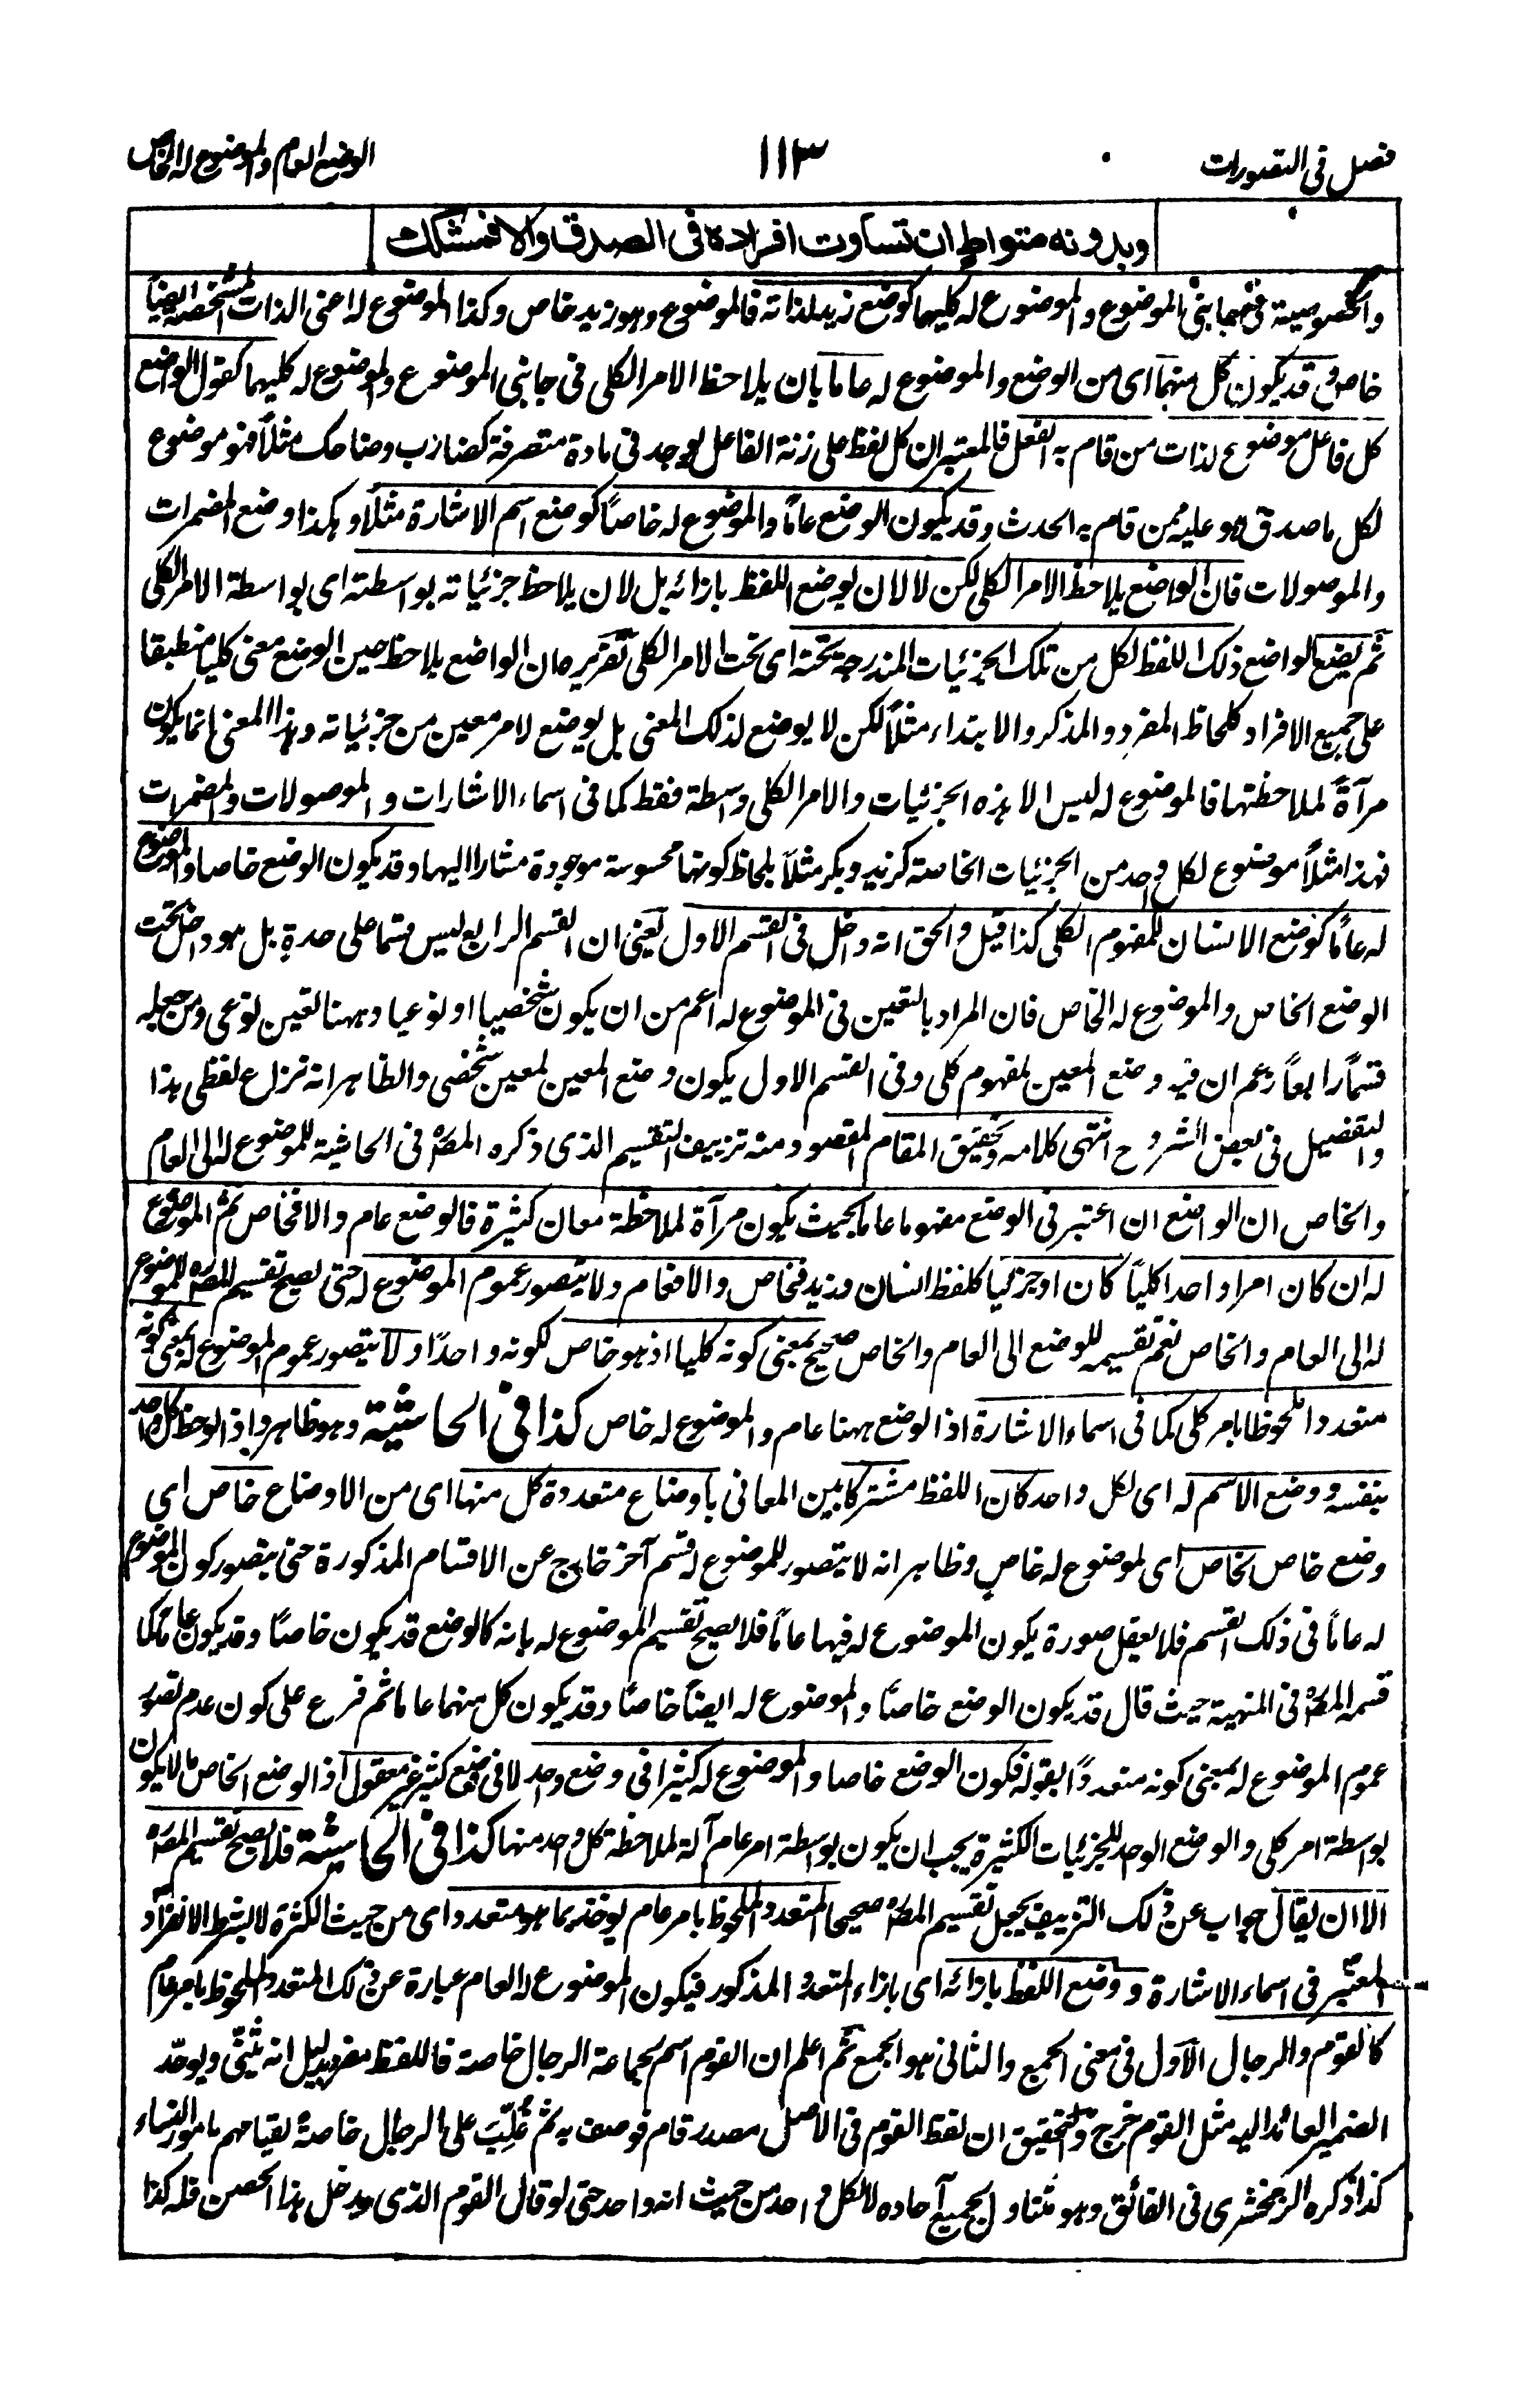 فصل فى التصورات
١١٣
الوضع العام والموضوع له الخاص
وبدونه متواط ان تساوت افراده فى الصدق والا فمشكك
والخصوصية فى جانبى الموضوع والموضوع له كليهما كوضع زيد لذاته فالموضوع وهو زيد خاص وكذا الموضوع له اعنى الذات المشخصة ايضاً
خاص وقد يكون كل منهما اى من الوضع والموضوع له عاما بان يلاحظ الامر الكلى فى جانبى الموضوع والموضوع له كليهما كقول الواضع
كل فاعل موضوع لذات من قام به الفعل فالمعتبر ان كل لفظ على زنة الفاعل يوجد فى مادة متصرفة كضارب وضاحك مثلاً فهو موضوع
لكل ما صدق هو عليه ممن قام به الحدث وقد يكون الوضع عامًا والموضوع له خاصًا كوضع اسم الاشارة مثلاً وهكذا وضع المضمرات
والموصولات فان الواضع يلاحظ الامر الكلى لكن لا لان يوضع اللفظ بازائه بل لان يلاحظ جزئياته بواسطته اى بواسطة الامر الكلى
ثم يضع الواضع ذلك اللفظ لكل من تلك الجزئيات المندرجة تحته اى تحت الامر الكلى تقريره ان الواضع يلاحظ حين الوضع معنى كليا منطبقا
على جميع الافراد كلحاظ المفرد والمذكر والابتداء مثلاً لكن لا يوضع لذلك المعنى بل يوضع لامر معين من جزئياته وهذا المعنى انما يكون
مرآة لملاحظتها فالموضوع له ليس الا هذه الجزئيات والامر الكلى واسطة فقط كما فى اسماء الاشارات والموصولات والمضمرات
فهذا مثلاً موضوع لكل واحد من الجزئيات الخاصة كزيد وبكر مثلاً بلحاظ كونها محسوسة موجودة مشارا اليها وقد يكون الوضع خاصا والموضوع
له عامًا كوضع الانسان للمفهوم الكلى كذا قيل والحق انه داخل فى القسم الاول يعنى ان القسم الرابع ليس قسما على حدة بل هو داخل تحت
الوضع الخاص والموضوع له الخاص فان المراد بالتعين فى الموضوع له اعم من ان يكون شخصيا او نوعيا وههنا تعين نوعى ومن جعله
قسمًا رابعاً زعم ان فيه وضع المعين لمفهوم كلى وفى القسم الاول يكون وضع المعين لمعين شخصى والظاهر انه نزاع لفظى هذا
والتفصيل فى بعض الشروح انتهى كلامه وتحقيق المقام المقصود منه تزييف التقسيم الذى ذكره المصؒ فى الحاشية للموضوع له الى العام
والخاص ان الواضع ان اعتبر فى الوضع مفهوما عاما بحيث يكون مرآة لملاحظة معان كثيرة فالوضع عام والا فخاص ثم الموضوع
له ان كان امرا واحدا كلياً كان او جزئيا كلفظ انسان وزيد فخاص والا فعام ولا يتصور عموم الموضوع له حتى يصح تقسيم المصره للموضوع
له الى العام والخاص نعم تقسيمه للوضع الى العام والخاص صحيح بمعنى كونه كليا اذ هو خاص لكونه واحدًا ولا يتصور عموم الموضوع له بمعنى كونه
متعددا ملحوظا بامر كلى كما فى اسماء الاشارة اذ الوضع ههنا عام والموضوع له خاص كذا فى الحاشية وهو ظاهر واذا لوحظ كل واحد
بنفسه ووضع الاسم له اى لكل واحد كان اللفظ مشتركا بين المعانى باوضاع متعددة كل منها اى من الاوضاع خاص اى
وضع خاص لخاص اى لموضوع له خاص وظاهر انه لا يتصور للموضوع له قسم آخر خارج عن الاقسام المذكورة حتى يتصور كون الموضوع
له عاماً فى ذلك القسم فلا يعقل صورة يكون الموضوع له فيها عاماً فلا يصح تقسيم الموضوع له بانه كالوضع قد يكون خاصًا وقد يكون عاما كما
قسمه المصؒ فى المنهية حيث قال قد يكون الوضع خاصًا والموضوع له ايضاً خاصًا وقد يكون كل منهما عاما ثم فرع على كون عدم تصور
عموم الموضوع له بمعنى كونه متعددًا بقوله فكون الوضع خاصا والموضوع له كثيرا فى وضع واحد لا فى وضع كثير غير معقول اذ الوضع الخاص ما لا يكون
بواسطة امر كلى والوضع الواحد للجزئيات الكثيرة يجب ان يكون بواسطة امر عام آلة لملاحظة كل واحد منها كذا فى الحاشية فلا يصح تقسيم المصره
الا ان يقال جواب عن ذلك التزييف يجعل تقسيم المصؒ صحيحا المتعدد الملحوظ بامر عام يؤخذ بما هو متعدد اى من حيث الكثرة لا بشرط الانفراد
المعتبر فى اسماء الاشارة ووضع اللفظ بازائه اى بازاء المتعدد المذكور فيكون الموضوع له العام عبارة عن ذلك المتعدد الملحوظ بامر عام
كالقوم والرجال الاول فى معنى الجمع والثانى هو الجمع ثم اعلم ان القوم اسم لجماعة الرجال خاصة فاللفظ مفرد بدليل انه يثنّى ويوحّد
الضمير العائد اليه مثل القوم خرج والتحقيق ان لفظ القوم فى الاصل مصدر قام فوصف به ثم غُلّبَ على الرجال خاصةً لقيامهم بامور النساء
كذا ذكره الزمخشرى فى الفائق وهو متناول لجميع آحاده لا لكل واحد من حيث انه واحد حتى لو قال القوم الذى يدخل هذا الحصن فله كذا